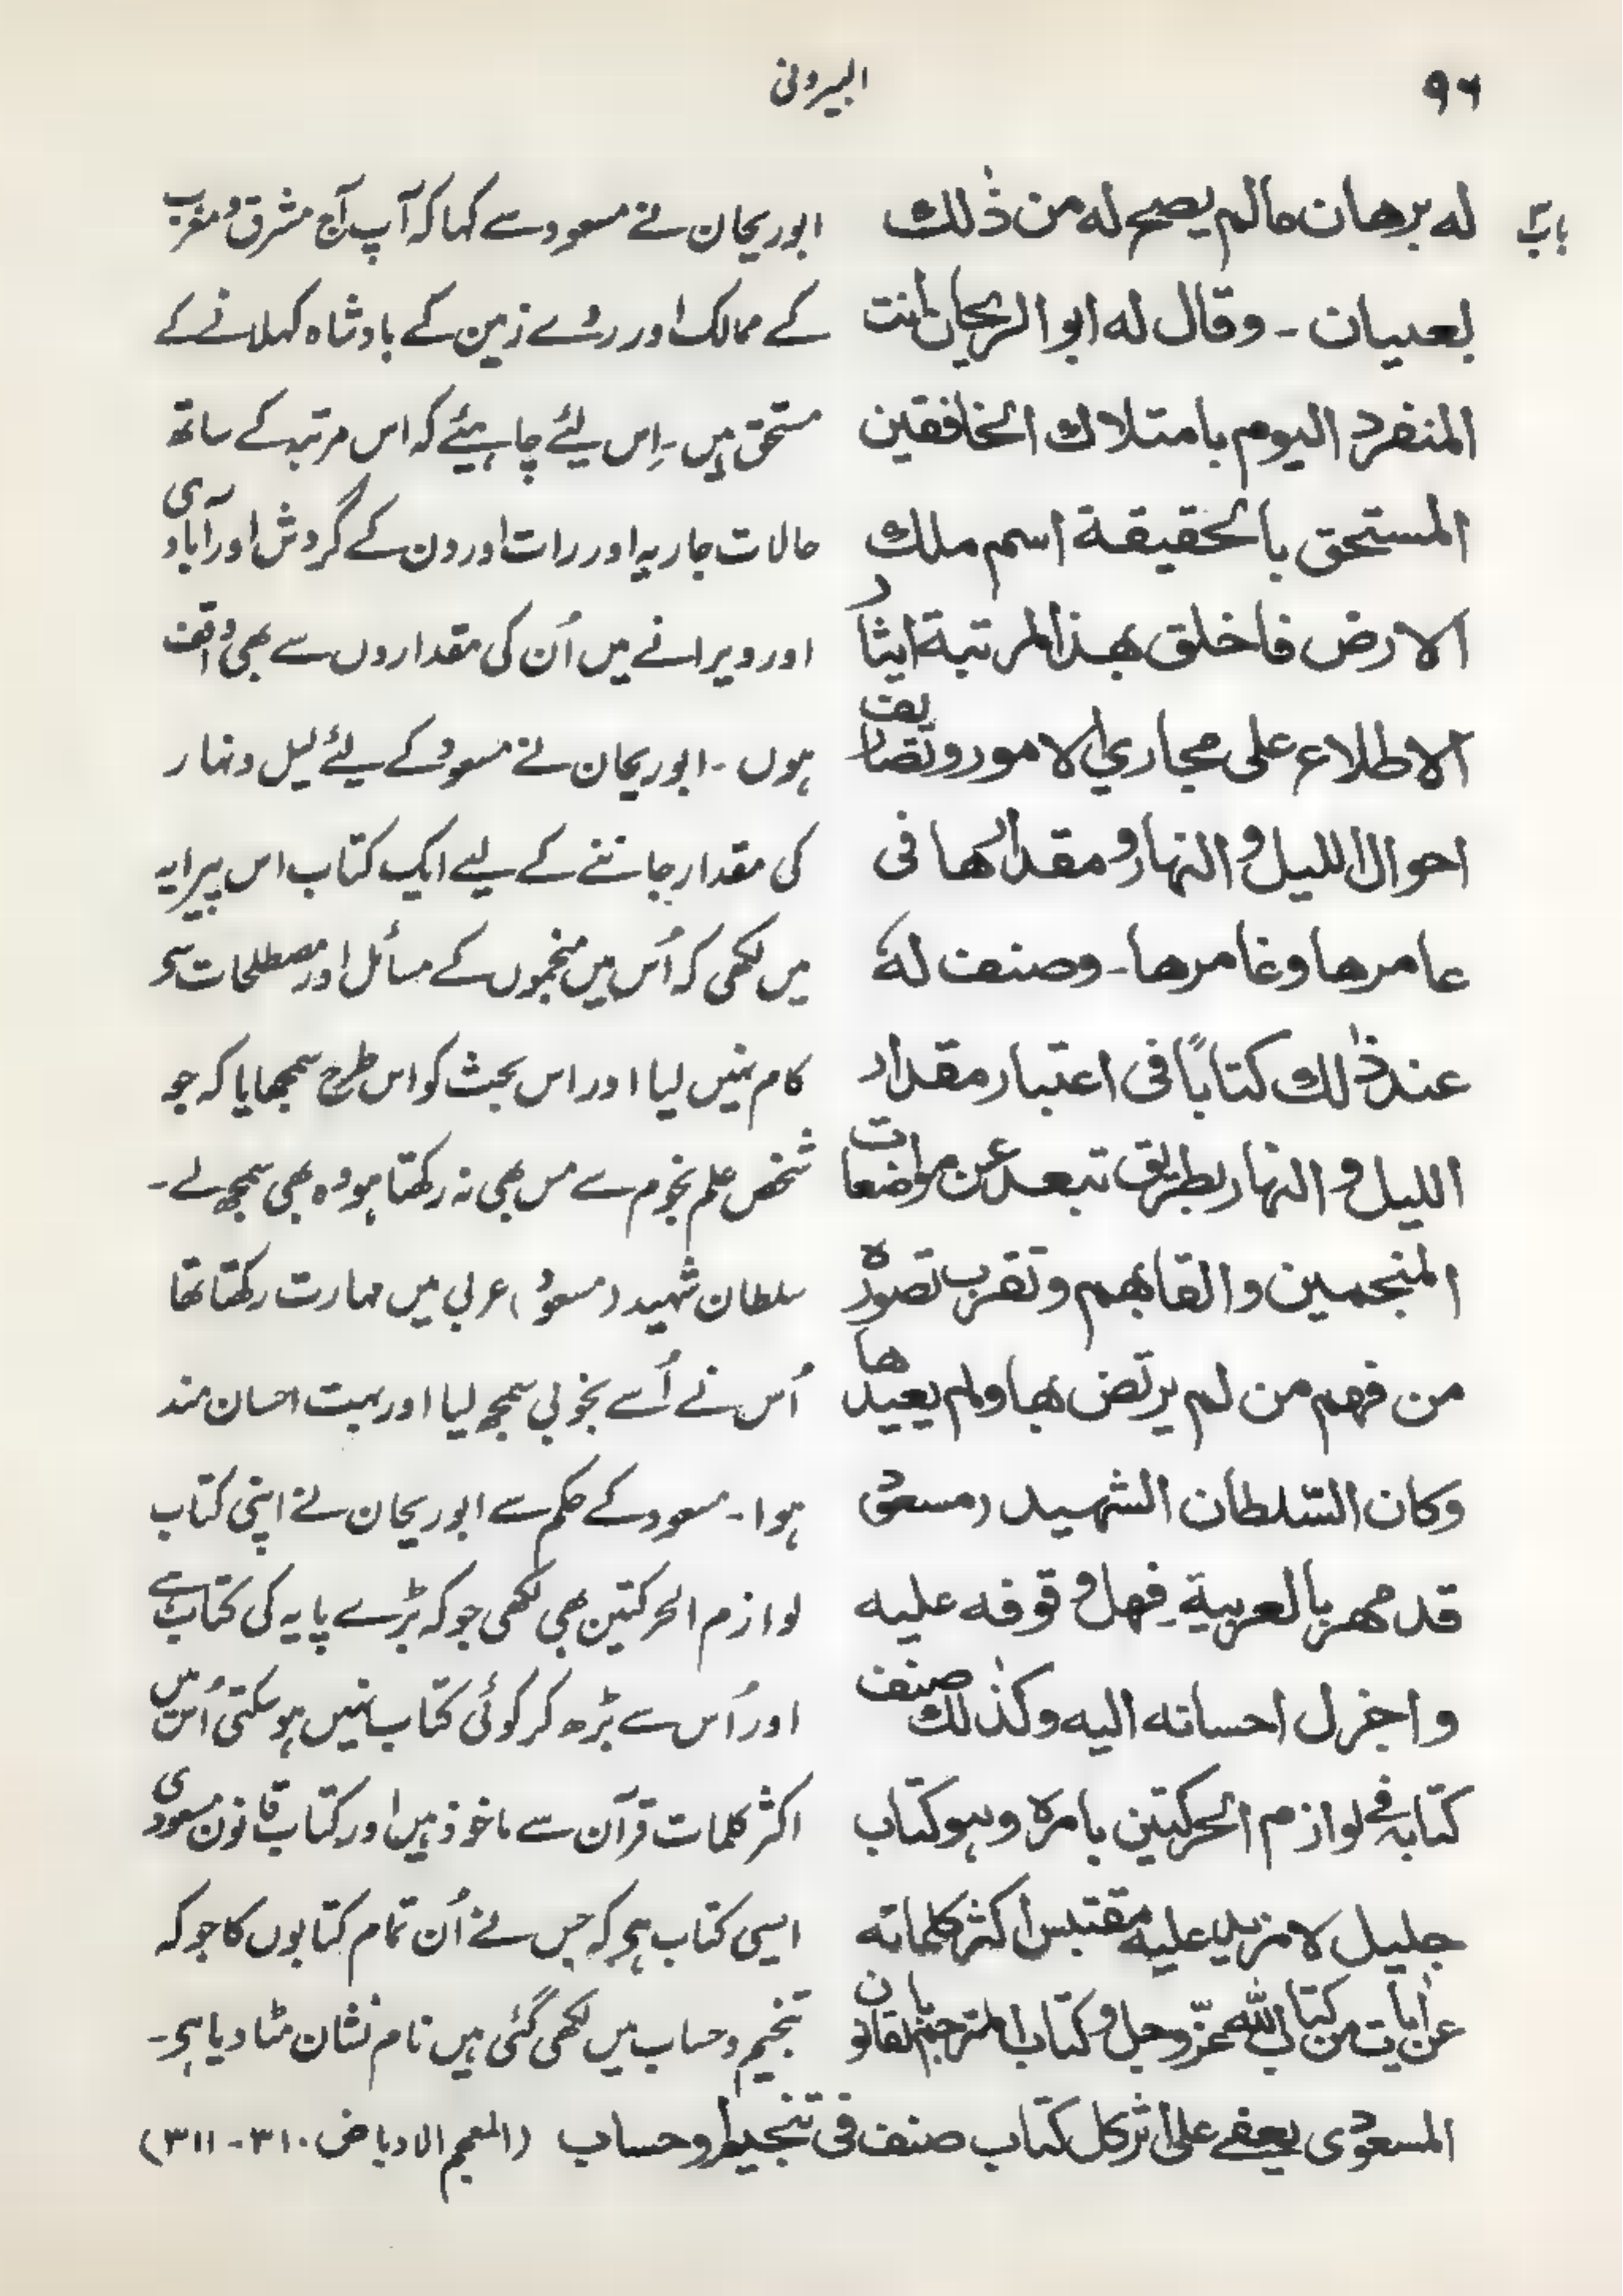 ۹۶
البیرونی
باب
له برهان مالم يصح له من ذٰلك
بعيان - وقال له ابو الريحان انت
المنفرد اليوم بامتلاك الخافقين
المستحق بالحقيقة اسم ملك
الارض فاخلق بهذا المرتبة ايثار
الاطلاع على مجاري الامور وتصاريف
احوال الليل و النهار و مقدارها فى
عامرها وغامرها - وصنف لهٗ
عند ذٰلك كتاباً فى اعتبار مقدار
الليل و النهار بطريق تبعد عن مواضعات
المنجمين والقابهم وتقرب تصوره
من فهم من لم يرتض بها ولم يعيدها
وكان السّلطان الشهيد (مسعود)
قد مهر بالعربية فهل وقوفه عليه
و اجزل احسانه اليه وكذلك صنف
كتابه فے لوازم الحركتين بامره وہو كتاب
جليل لا مزيد عليه مقتبس اكثر كلماته
عن اٰيات من كتاب الله عزّ وجل و كتاب المترجم بالقانون
المسعودى يعفے على اثر كل كتاب صنف فى تنجيم او حساب
ابوریحان نے مسعود سے کہا کہ آپ آج مشرق و مغرب
کے ممالک اور روے زمین کے بادشاہ کہلانے کے
مستحق ہیں - اِس لیٔے چاہیٔے کہ اس مرتبہ کے ساتھ
حالات جاریہ اور رات اور دن کے گردش اور آبادی
اور ویرانے میں اُن کی مقداروں سے بھی واقف
ہوں - ابوریحان نے مسعود کے لیٔے لیل و نہار
کی مقدار جاننے کے لیے ایک کتاب اس پیرایہ
میں لکھی کہ اُس میں منجموں کے مسائل اور مصطلحات سے
کام نہیں لیا اور اس بحث کو اس طرح سمجھایا کہ جو
شخص علم نجوم سے مس بھی نہ رکھتا ہو وہ بھی سمجھ لے -
سلطان شہید (مسعود) عربی میں مہارت رکھتا تھا
اُس نے اُسے بخوبی سمجھ لیا اور بہت احسان مند
ہوا - مسعود کے حکم سے ابوریحان نے اپنی کتاب
لوازم الحرکتین بھی لکھی جو کہ بڑے پایہ کی کتاب ہے
اور اُس سے بڑھ کر کوئی کتاب نہیں ہو سکتی اُس میں
اکثر کلمات قرآن سے ماخوذ ہیں اور کتاب قانون مسعودی
ایسی کتاب ہے کہ جس نے اُن تمام کتابوں کا جو کہ
تنجیم و حساب میں لکھی گئی ہیں نام نشان مٹا دیا ہے -
(المعجم الادبا ص ۳۱۰ - ۳۱۱)